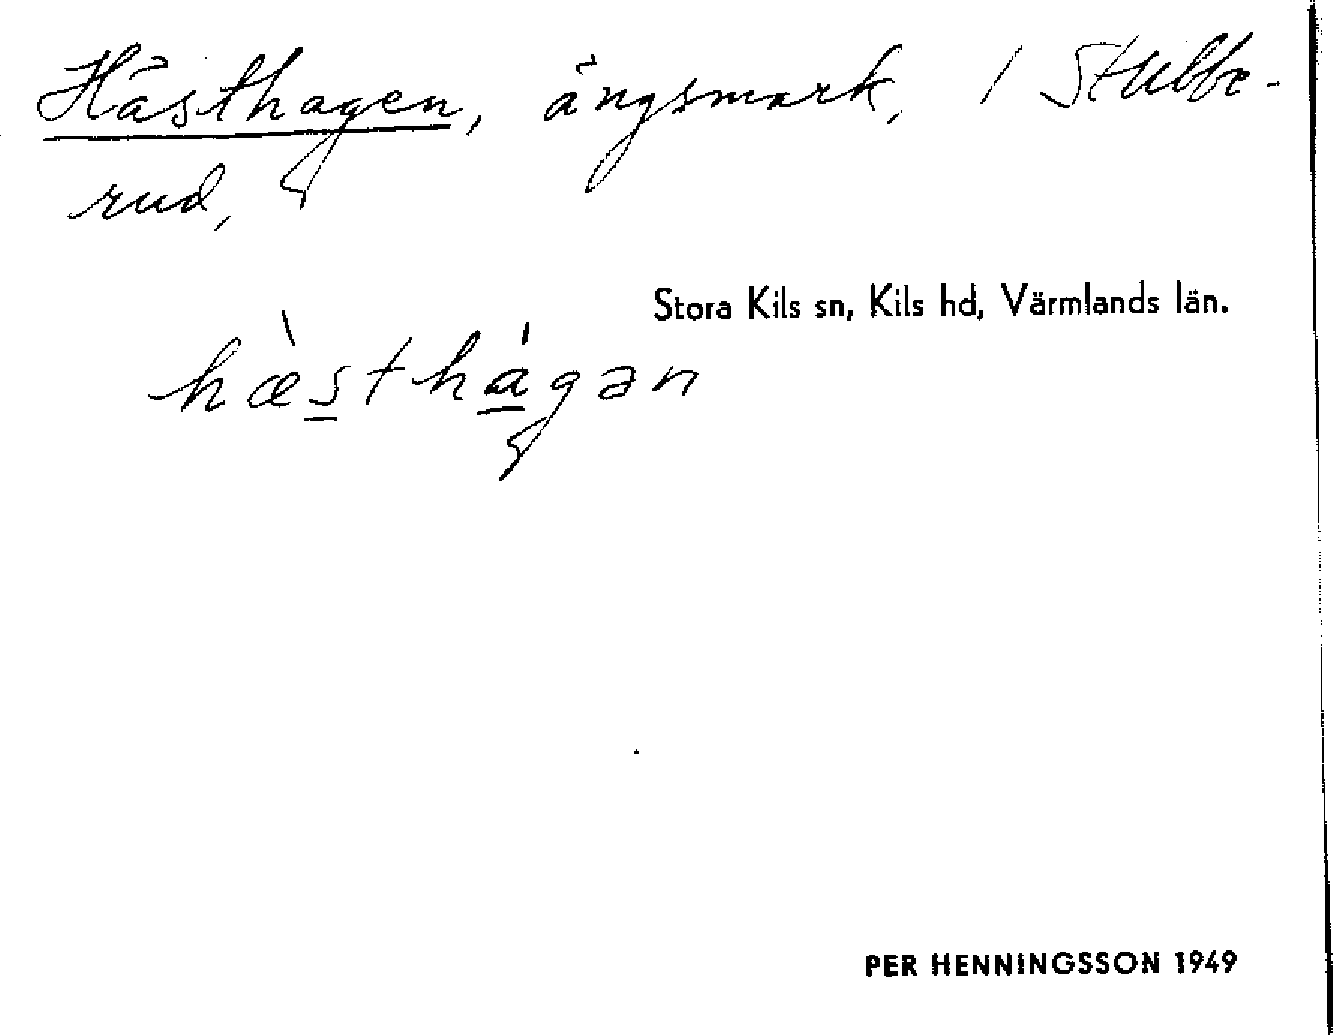 Hästhagen, ängsmark, 1 Stubbe-
rud,
Stora Kils sn, Kils hd, Värmlands län.
hæ̀s̲thá̲gən
PER HENNINGSSON 1949